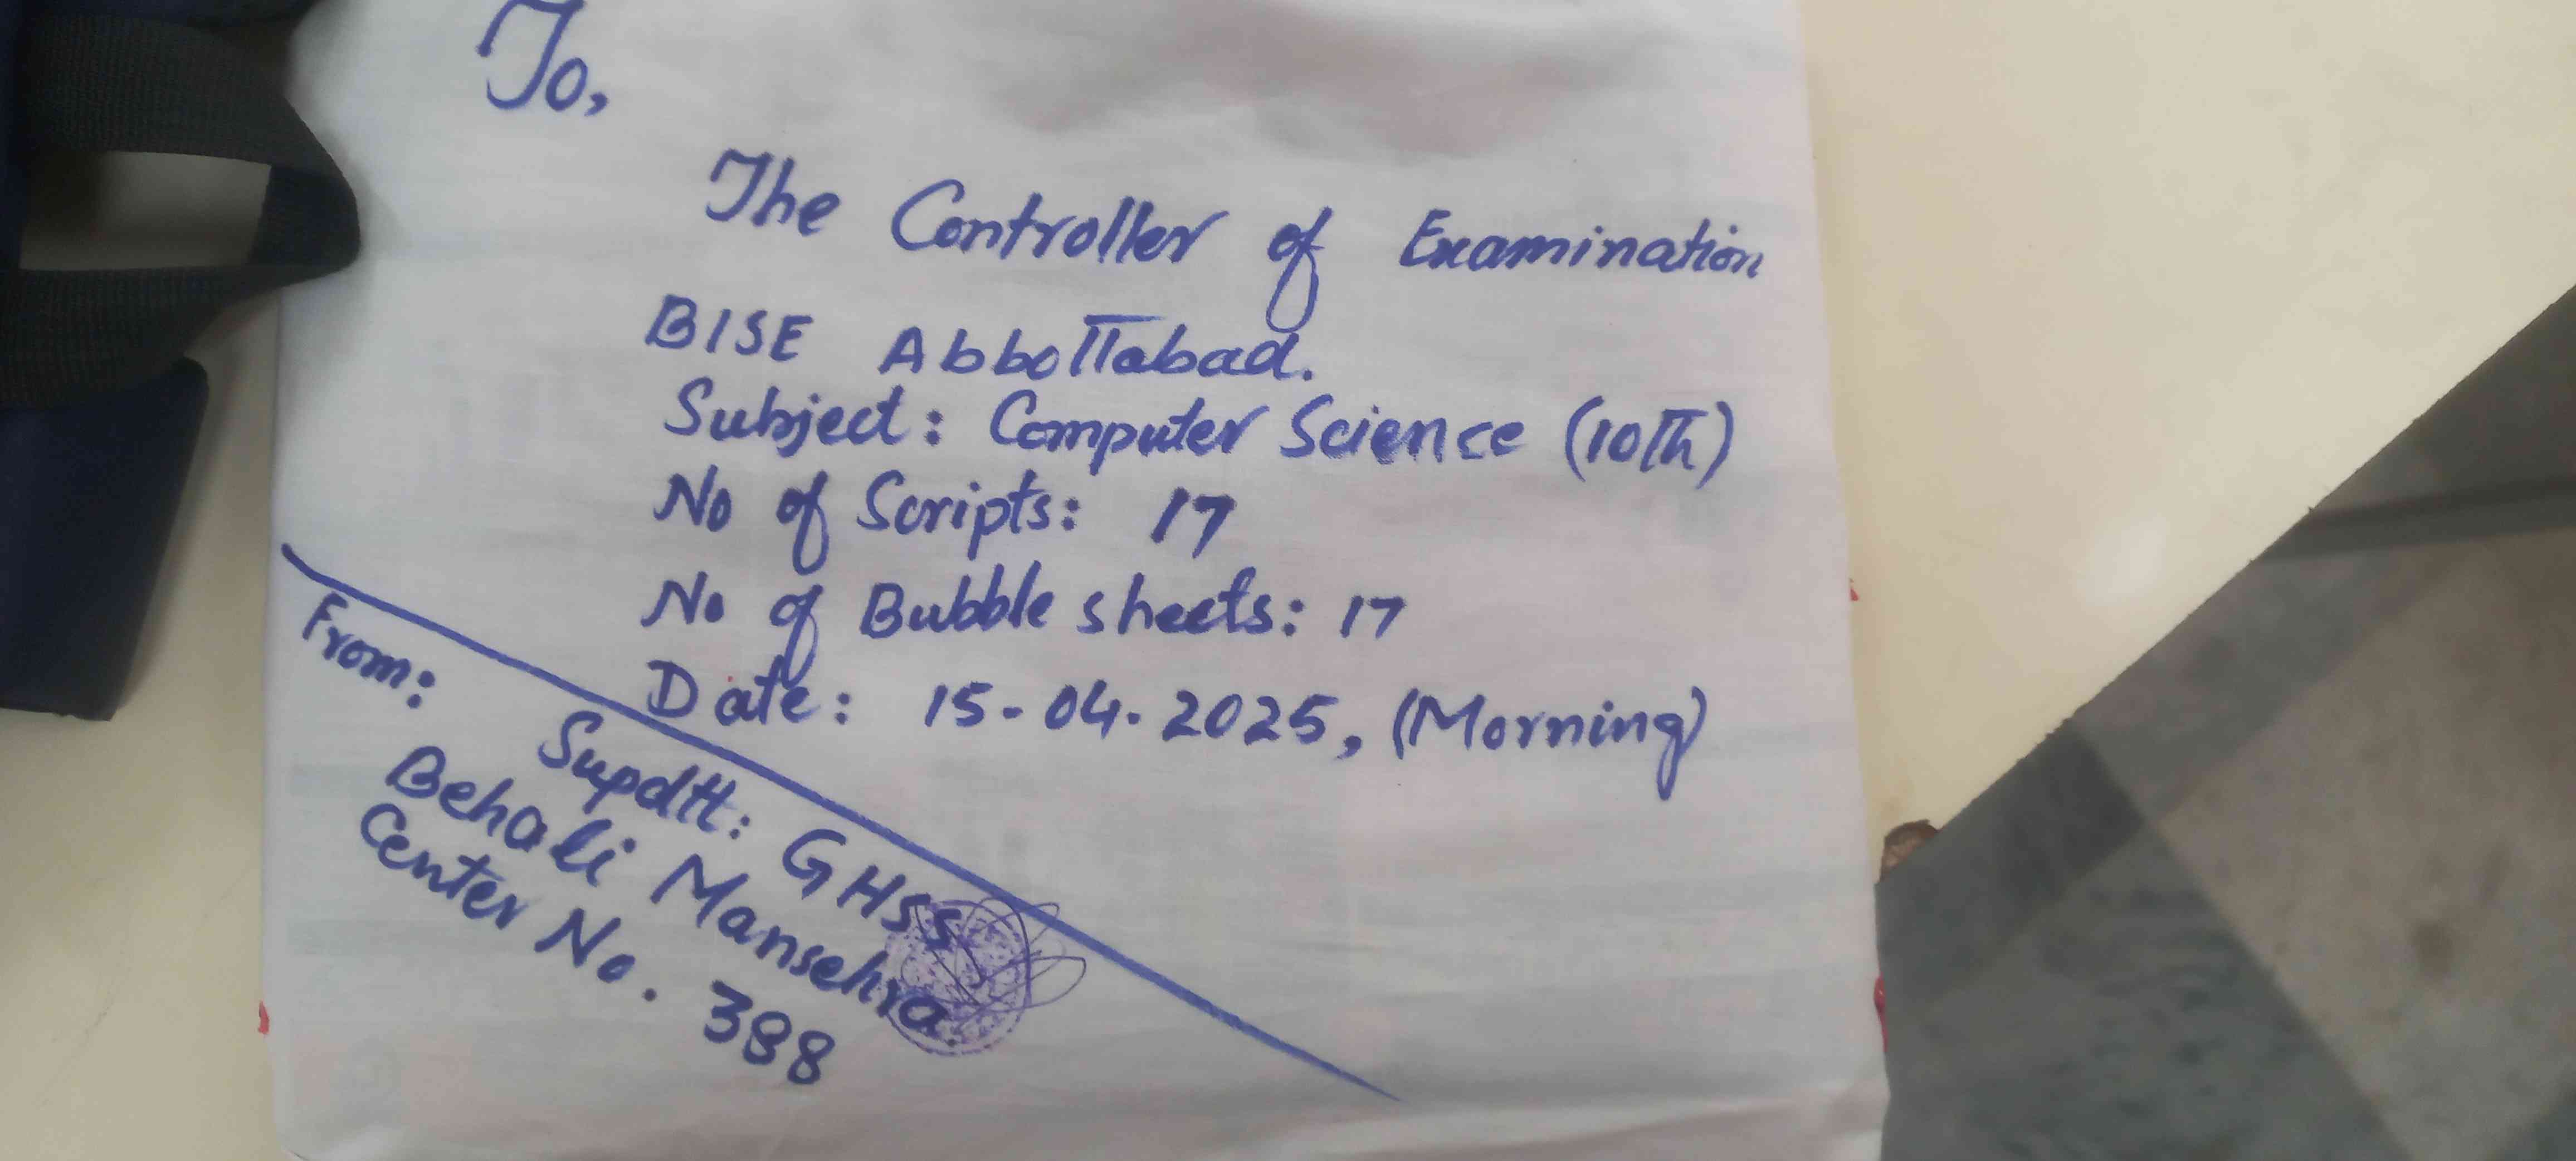 To,
The Controller of Examination
BISE Abbottabad.
Subject: Computer Science (10th)
No of Scripts: 17
No of Bubble sheets: 17
Date: 15-04-2025, (Morning)
From:
Supdtt: GHSS
Behali Mansehra.
Center No. 388